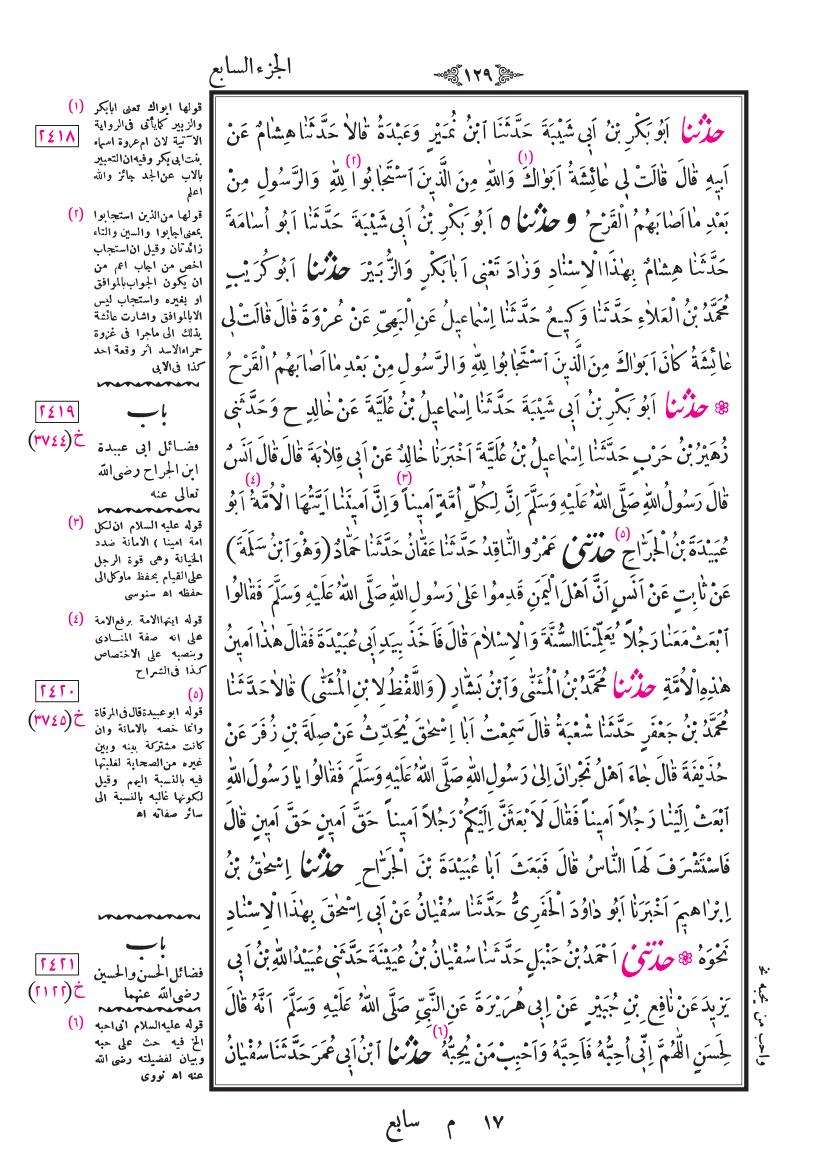 الجزء السابع
١٢٩
حدثنا أَبُو بَكْرِ بْنُ أَبِي شَيْبَةَ حَدَّثَنَا ابْنُ نُمَيْرٍ وَعَبْدَةُ قَالَا حَدَّثَنَا هِشَامٌ عَنْ
أَبِيهِ قَالَ قَالَتْ لِي عَائِشَةُ أَبَوَاكَ (١) وَاللهِ مِنَ الَّذِينَ اسْتَجَابُوا (٢) لِلّٰهِ وَالرَّسُولِ مِنْ
بَعْدِ مَا أَصَابَهُمُ الْقَرْحُ و حدثناه أَبُو بَكْرِ بْنُ أَبِي شَيْبَةَ حَدَّثَنَا أَبُو أُسَامَةَ
حَدَّثَنَا هِشَامٌ بِهٰذَا الْإِسْنَادِ وَزَادَ تَعْنِي أَبَا بَكْرٍ وَالزُّبَيْرَ حدثنا أَبُو كُرَيْبٍ
مُحَمَّدُ بْنُ الْعَلَاءِ حَدَّثَنَا وَكِيعٌ حَدَّثَنَا إِسْمَاعِيلُ عَنِ الْبَهِيِّ عَنْ عُرْوَةَ قَالَ قَالَتْ لِي
عَائِشَةُ كَانَ أَبَوَاكَ مِنَ الَّذِينَ اسْتَجَابُوا لِلّٰهِ وَالرَّسُولِ مِنْ بَعْدِ مَا أَصَابَهُمُ الْقَرْحُ
حدثنا أَبُو بَكْرِ بْنُ أَبِي شَيْبَةَ حَدَّثَنَا إِسْمَاعِيلُ بْنُ عُلَيَّةَ عَنْ خَالِدٍ ح وَحَدَّثَنِي
زُهَيْرُ بْنُ حَرْبٍ حَدَّثَنَا إِسْمَاعِيلُ بْنُ عُلَيَّةَ أَخْبَرَنَا خَالِدٌ عَنْ أَبِي قِلَابَةَ قَالَ قَالَ أَنَسٌ
قَالَ رَسُولُ اللهِ صَلَّى اللهُ عَلَيْهِ وَسَلَّمَ إِنَّ لِكُلِّ أُمَّةٍ أَمِيناً (٣) وَإِنَّ أَمِينَنَا أَيَّتُهَا الْأُمَّةُ (٤) أَبُو
عُبَيْدَةَ بْنُ الْجَرَّاحِ (٥) حدثني عَمْرٌو النَّاقِدُ حَدَّثَنَا عَفَّانُ حَدَّثَنَا حَمَّادٌ (وَهُوَ ابْنُ سَلَمَةَ)
عَنْ ثَابِتٍ عَنْ أَنَسٍ أَنَّ أَهْلَ الْيَمَنِ قَدِمُوا عَلَى رَسُولِ اللهِ صَلَّى اللهُ عَلَيْهِ وَسَلَّمَ فَقَالُوا
ابْعَثْ مَعَنَا رَجُلاً يُعَلِّمْنَا السُّنَّةَ وَالْإِسْلَامَ قَالَ فَأَخَذَ بِيَدِ أَبِي عُبَيْدَةَ فَقَالَ هٰذَا أَمِينُ
هٰذِهِ الْأُمَّةِ حدثنا مُحَمَّدُ بْنُ الْمُثَنَّى وَابْنُ بَشَّارٍ (وَاللَّفْظُ لِابْنِ الْمُثَنَّى) قَالَا حَدَّثَنَا
مُحَمَّدُ بْنُ جَعْفَرٍ حَدَّثَنَا شُعْبَةُ قَالَ سَمِعْتُ أَبَا إِسْحٰقَ يُحَدِّثُ عَنْ صِلَةَ بْنِ زُفَرَ عَنْ
حُذَيْفَةَ قَالَ جَاءَ أَهْلُ نَجْرَانَ إِلَى رَسُولِ اللهِ صَلَّى اللهُ عَلَيْهِ وَسَلَّمَ فَقَالُوا يَا رَسُولَ اللهِ
ابْعَثْ إِلَيْنَا رَجُلاً أَمِيناً فَقَالَ لَأَبْعَثَنَّ إِلَيْكُمْ رَجُلاً أَمِيناً حَقَّ أَمِينٍ حَقَّ أَمِينٍ قَالَ
فَاسْتَشْرَفَ لَهَا النَّاسُ قَالَ فَبَعَثَ أَبَا عُبَيْدَةَ بْنَ الْجَرَّاحِ حدثنا إِسْحٰقُ بْنُ
إِبْرَاهِيمَ أَخْبَرَنَا أَبُو دَاوُدَ الْحَفَرِيُّ حَدَّثَنَا سُفْيَانُ عَنْ أَبِي إِسْحٰقَ بِهٰذَا الْإِسْنَادِ
نَحْوَهُ حدثني أَحْمَدُ بْنُ حَنْبَلٍ حَدَّثَنَا سُفْيَانُ بْنُ عُيَيْنَةَ حَدَّثَنِي عُبَيْدُ اللهِ بْنُ أَبِي
يَزِيدَ عَنْ نَافِعِ بْنِ جُبَيْرٍ عَنْ أَبِي هُرَيْرَةَ عَنِ النَّبِيِّ صَلَّى اللهُ عَلَيْهِ وَسَلَّمَ أَنَّهُ قَالَ
لِحَسَنٍ اللّٰهُمَّ إِنِّي أُحِبُّهُ فَأَحِبَّهُ وَأَحْبِبْ مَنْ يُحِبُّهُ (٦) حدثنا ابْنُ أَبِي عُمَرَ حَدَّثَنَا سُفْيَانُ
واحب من يحبه نخ
(١) قولها ابواك تعنى ابابكر
والزبير كما يأتى فى الرواية
الآتية لان ام عروة اسماء
بنت ابى بكر وفيه ان التعبير
بالاب عن الجد جائز والله
اعلم
٢٤١٨
(٢) قولها من الذين استجابوا
بمعنى اجابوا والسين والتاء
زائدتان وقيل ان استجاب
اخص من اجاب اعم من
ان يكون الجواب بالموافق
او بغيره واستجاب ليس
الا بالموافق واشارت عائشة
بذلك الى ما جرا فى غزوة
حمراء الاسد اثر وقعة احد
كذا فى الابى
باب
٢٤١٩
خ (٣٧٤٤)
فضائل ابى عبيدة
ابن الجراح رضى الله
تعالى عنه
(٣) قوله عليه السلام ان لكل
امة امينا ) الامانة ضدد
الخيانة وهى قوة الرجل
على القيام بحفظ ماوكل الى
حفظه اه سنوسى
(٤) قوله ايتها الامة برفع الامة
على انه صفة المنادى
وبنصبه على الاختصاص
كذا فى الشراح
٢٤٢٠
خ (٣٧٤٥)
(٥)
قوله ابو عبيدة قال فى المرقاة
وانما خصه بالامانة وان
كانت مشتركة بينه وبين
غيره من الصحابة لغلبتها
فيه بالنسبة اليهم وقيل
لكونها غالبه بالنسبة الى
سائر صفاته اه
باب
٢٤٢١
خ (٢١٢٢)
فضائل الحسن والحسين
رضى الله عنهما
(٦) قوله عليه السلام انى احبه
الخ فيه حث على حبه
وبيان لفضيلته رضى الله
عنه اه نووى
١٧ م سابع